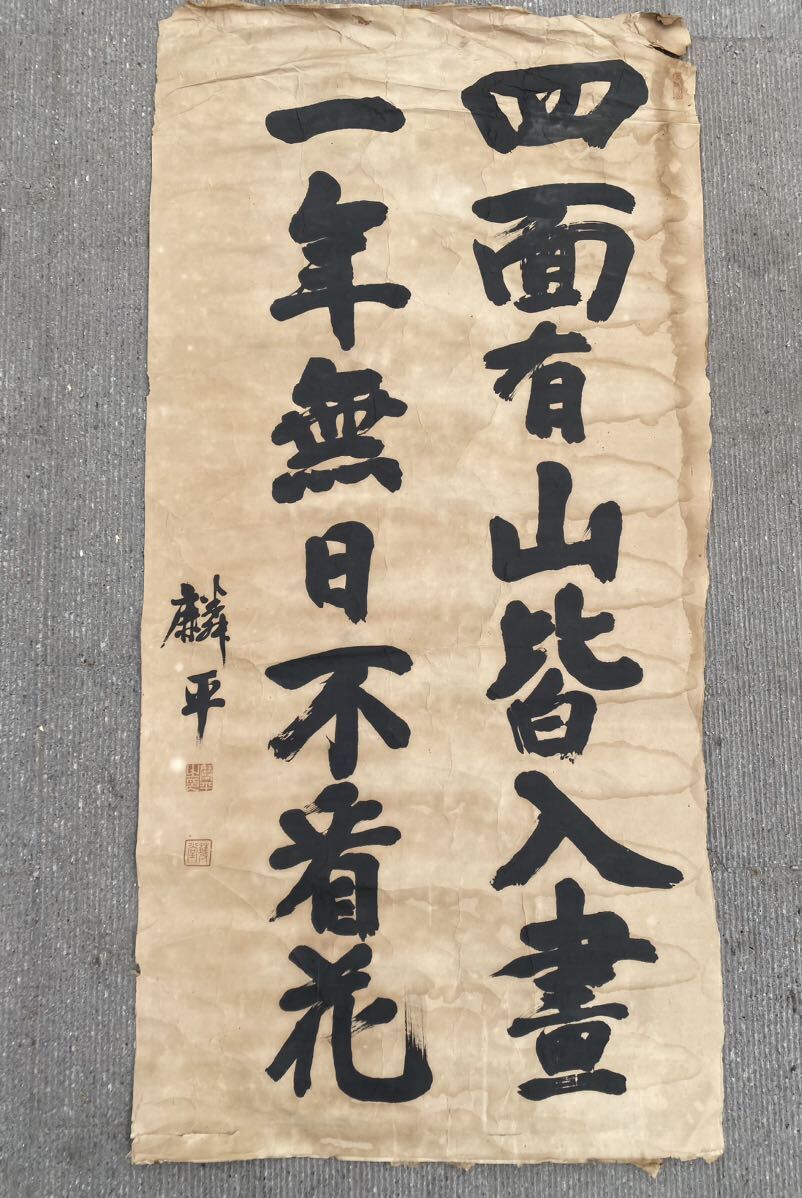 四面有山皆入畫
一年無日不看花
麟平